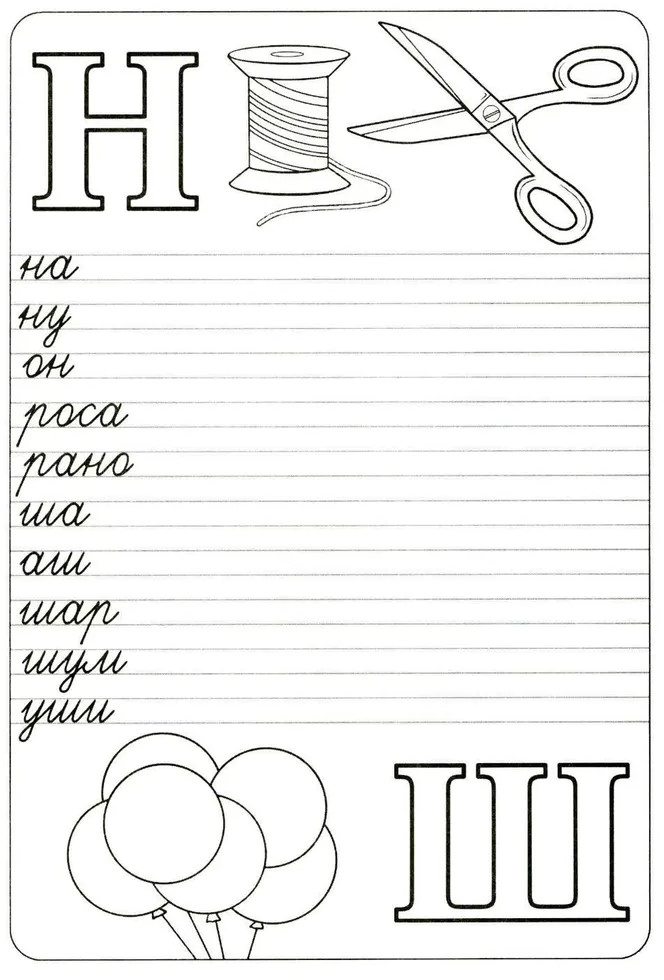 Н
на
ну
он
роса
рано
ша
аш
шар
шум
уши
Ш